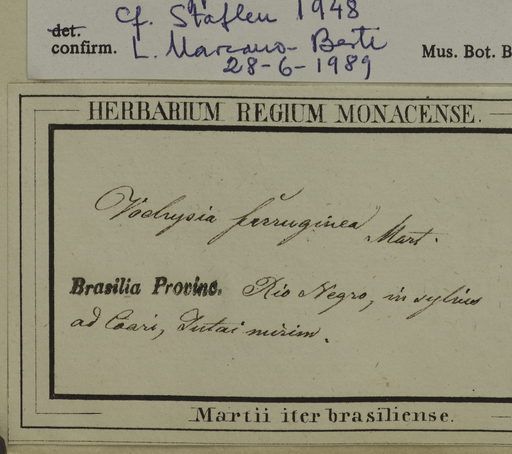 cf. Stafleu 1948
det.
confirm. L. Marcano-Berti
28-6-1989
Mus. Bot. B
HERBARIUM REGIUM MONACENSE.
Vochysia ferruginea Mart.
Brasilia Provinc. Rio Negro, in sylvis
ad Coari, Jutai mirim.
Martii iter brasiliense.